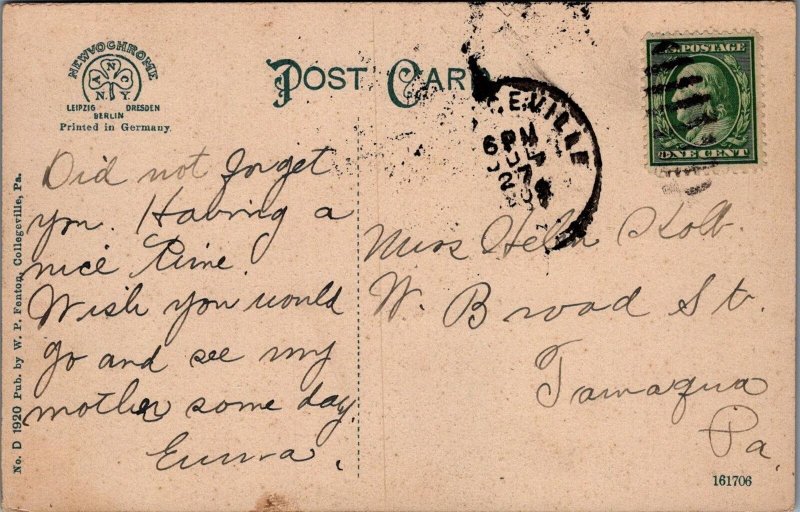 NEWVOCHROME
ANC
N.Y.
LEIPZIG DRESDEN
BERLIN
Printed in Germany.
POST CARD
U.S. POSTAGE
ONE CENT
EVILLE
6 PM
JUL
27
Did not forget
you. Having a
nice time.
Wish you would
go and see my
mother some day.
Emma.
Miss Helen Kolb.
W. Broad St.
Tamaqua
Pa.
No. D 1920 Pub. by W. P. Fenton, Collegeville, Pa.
161706